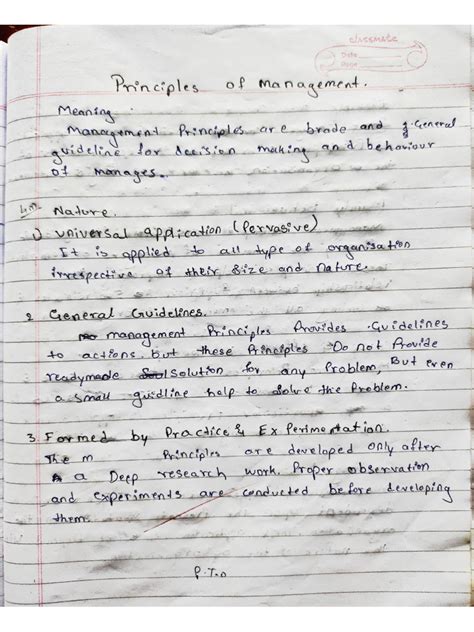 classmate
Date
Page
Principles of management.
Meaning
Management Principles are brade and general
guideline for decision making and behaviour
of manages.
Nature.
1) universal application (Pervasive)
It is applied to all type of organisation
irrespective of their size and nature.
2. General Guidelines.
management Principles Provides Guidelines
to actions. but these Principles Do not Provide
readymade solution for any Problem, But even
a small guidline help to solve the Problem.
3. Formed by Practice & Experimentation.
The m Principles are developed only after
a Deep research work. Proper observation
and experiments are conducted before developing
them.
P.T.O